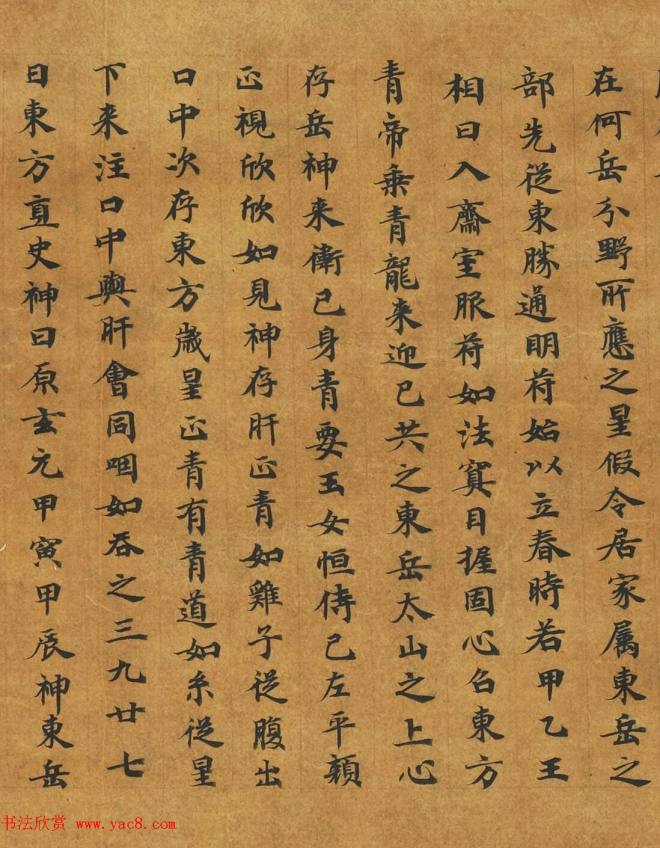 在何岳分野所應之星假令居家属東岳之
部先従東勝通明苻始以立春時若甲乙王
相日入齋室服苻如法寘目握固心召東方
青帝乗青龍来迎已共之東岳太山之上心
存岳神来衛已身青要玉女恒侍已左平頬
正視欣欣如見神存肝正青如雞子従腹出
口中次存東方歳星正青有青道如糸従星
下来注口中與肝會同咽如吞之三九廿七
日東方直史神曰原玄元甲寅甲辰神東岳
书法欣赏 www.yac8.com